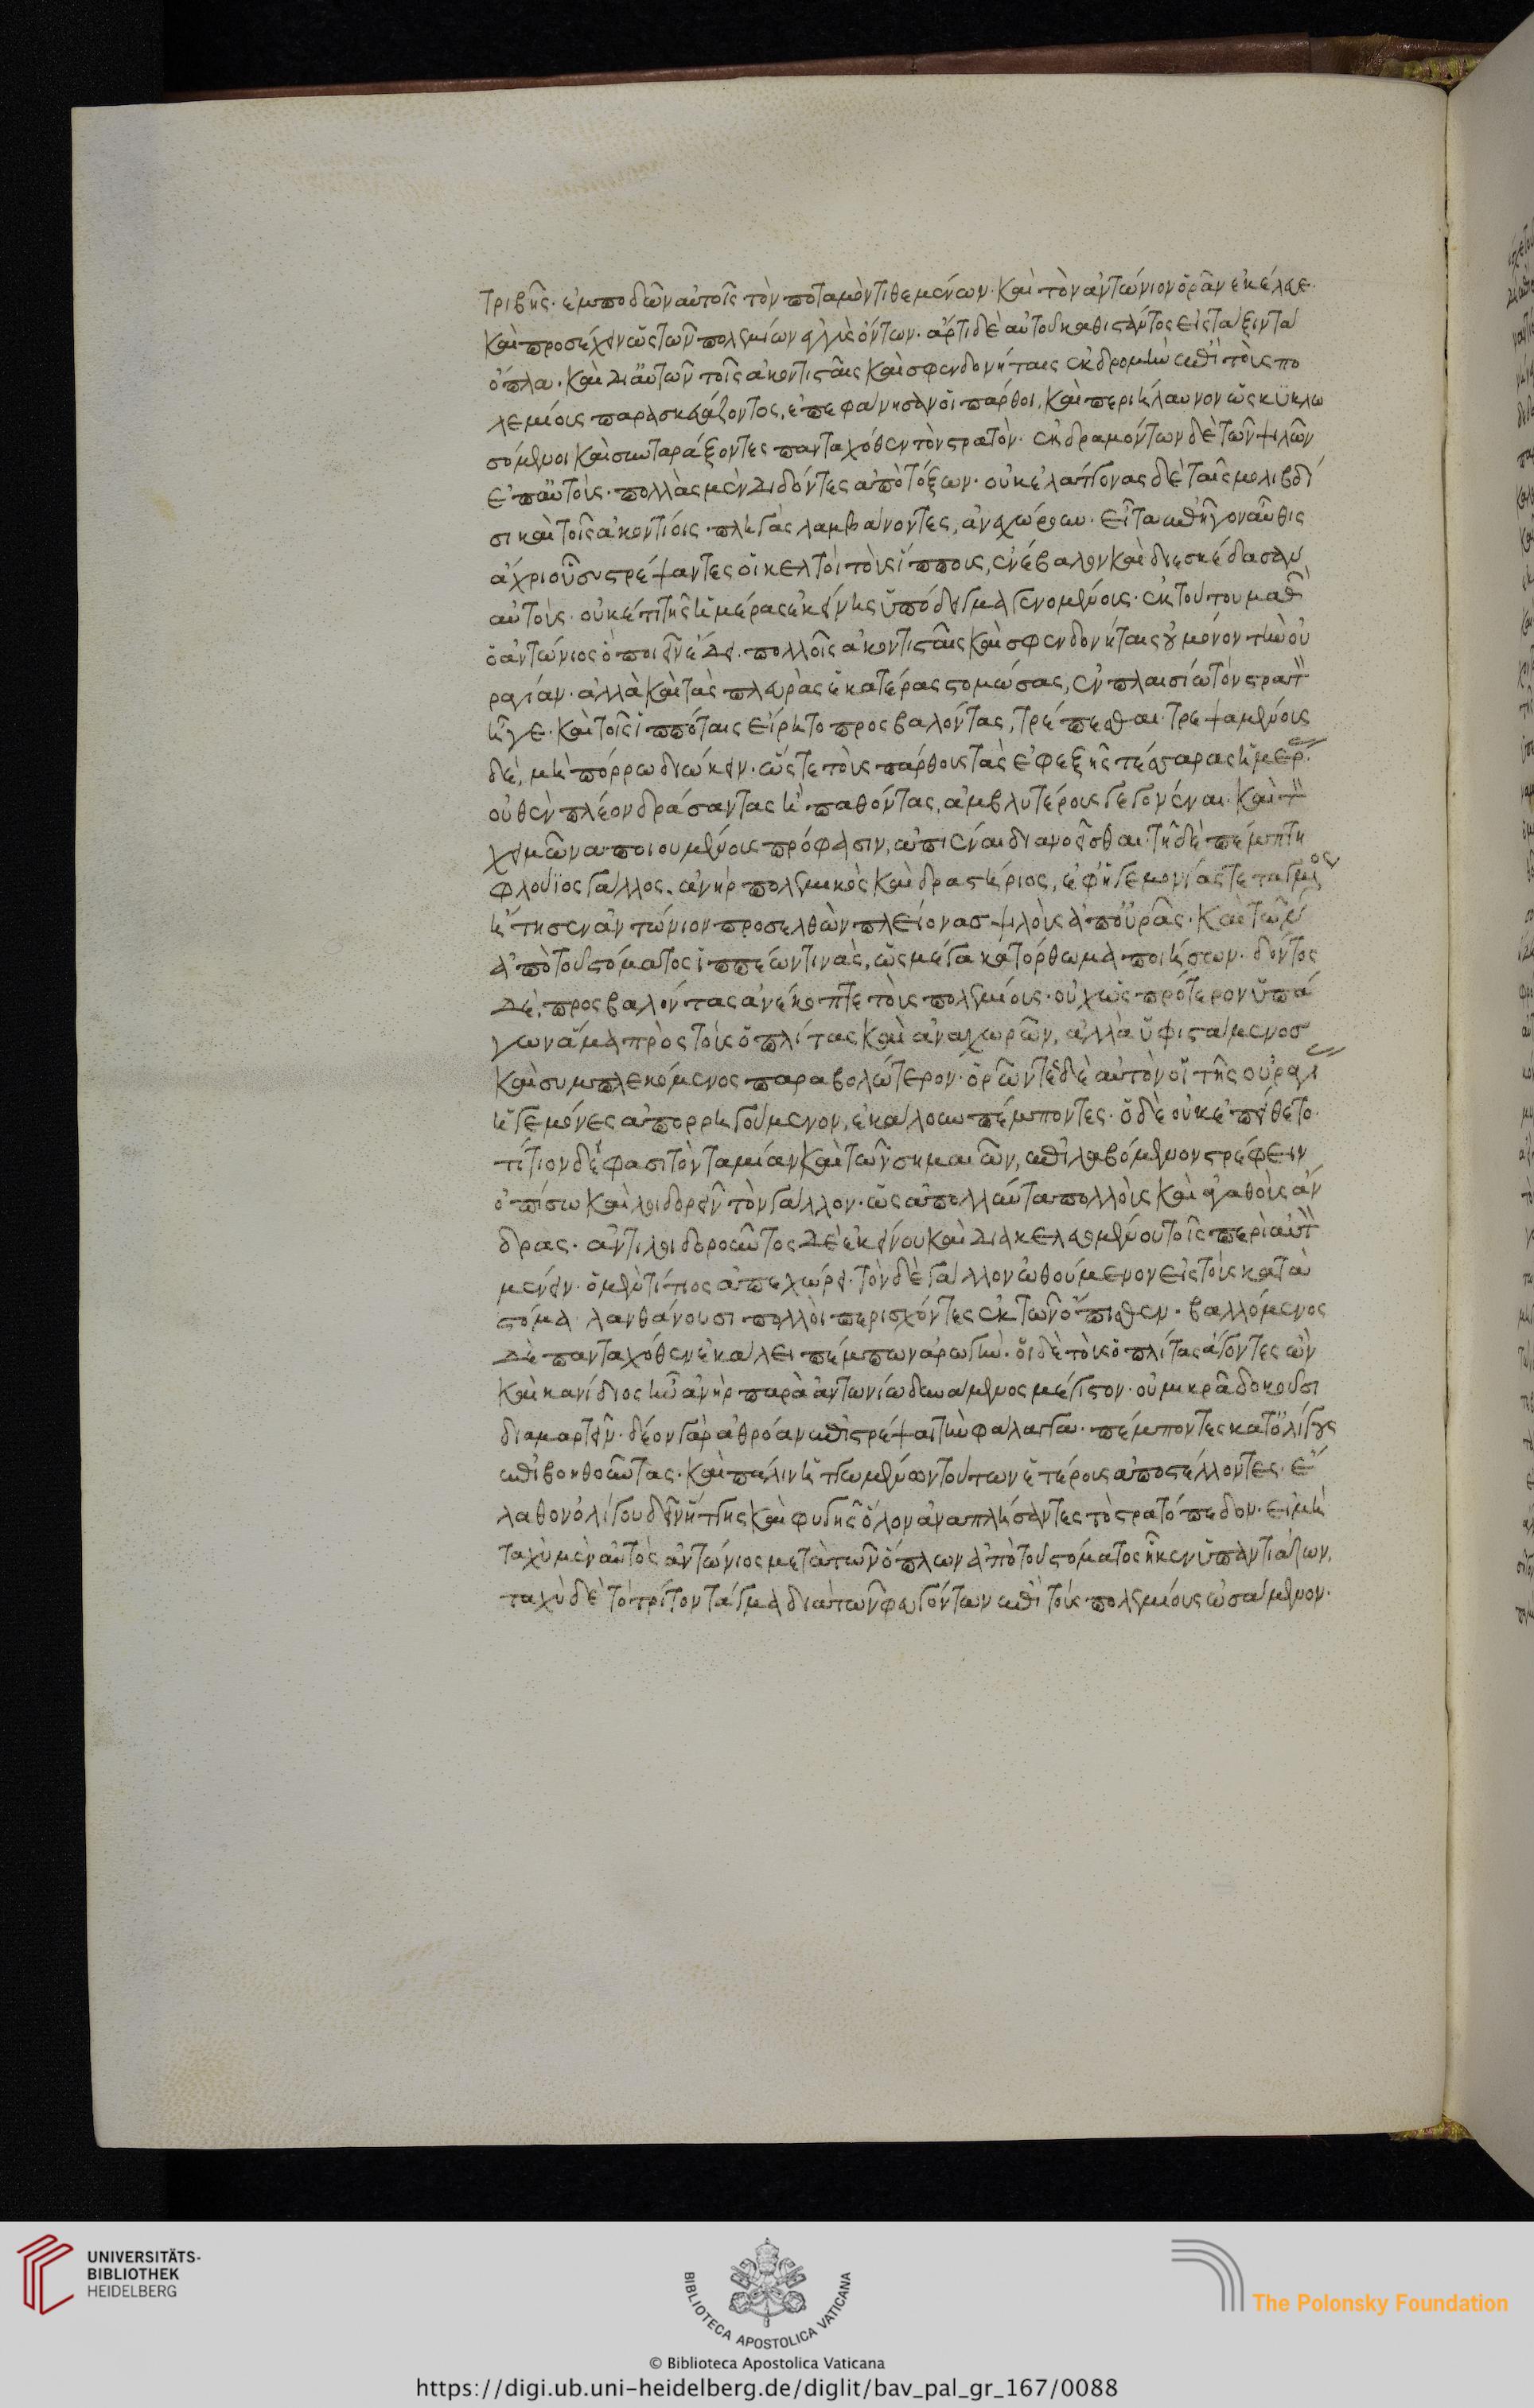 τριβῆς· ἐμποδὼν αὐτοῖς τὸν ποταμὸν τιθεμένων· καὶ τὸν ἀντώνιον ὁρᾶν ἐκέλευε·
καὶ προσέχειν ὡς τῶν πολεμίων ἐγγὺς ὄντων. ἄρτι δὲ αὐτοῦ καθιστάντος εἰς τάξιν τὰ
ὅπλα. καὶ δι᾽ αὐτῶν τοῖς ἀκοντισταῖς καὶ σφενδονήταις ἐκδρομὴν ἐπὶ τοὺς πο
λεμίους παρασκευάζοντος, ἐπεφάνησαν οἱ πάρθοι, καὶ περιήλαυνον ὡς κυκλω
σόμενοι καὶ συνταράξοντες πανταχόθεν τὸν στρατόν· ἐκδραμόντων δὲ τῶν ψιλῶν
ἐπ᾽ αὐτοὺς· πολλὰς μὲν διδόντες ἀπὸ τόξων· οὐκ ἐλάττονας δὲ ταῖς μολιβδί
σι καὶ τοῖς ἀκοντίοις· πληγὰς λαμβάνοντες, ἀνεχώρουν· εἶτα ἐπῆγον αὖθις
ἄχρι οὗ συστρέψαντες οἱ κελτοὶ τοὺς ἵππους, ἐνέβαλον καὶ διεσκέδασαν
αὐτοὺς· οὐκέτι τῆς ἡμέρας ἐκείνης ὑπόδειγμα γενομένους· ἐκ τούτου μαθὼν
ὁ ἀντώνιος ὃ ποιεῖν ἔδει. πολλοῖς ἀκοντισταῖς καὶ σφενδονήταις οὐ μόνον τὴν οὐ
ραγίαν· ἀλλὰ καὶ τὰς πλευρὰς ἑκατέρας στομώσας, ἐν πλαισίῳ τὸν στρατὸν
ἦγε· καὶ τοῖς ἱππόταις εἴρητο προσβαλόντας, τρέπεσθαι· τρεψαμένους
δὲ, μὴ πόρρω διώκειν· ὥστε τοὺς πάρθους τὰς ἐφεξῆς τέσσαρας ἡμέρας
οὐθὲν πλέον δράσαντας ἢ παθόντας, ἀμβλυτέρους γεγονέναι· καὶ τὸν
χειμῶνα ποιουμένους πρόφασιν, ἀπιέναι διανοεῖσθαι· τῇ δὲ πέμπτῃ
φλούϊος γάλλος, ἀνὴρ πολεμικὸς καὶ δραστήριος, ἐφ᾽ ἡγεμονίας τεταγμένος
ᾔτησεν ἀντώνιον προσελθὼν πλείονας ψιλοὺς ἀπ᾽ οὐρᾶς· καὶ τῶν
ἀπὸ τοῦ στόματος ἱππέων τινὰς, ὡς μέγα κατόρθωμα ποιήσων· δόντος
δὲ, προσβαλόντας ἀνέκοπτε τοὺς πολεμίους· οὐχ ὡς πρότερον ὑπά
γων ἅμα πρὸς τοὺς ὁπλίτας καὶ ἀναχωρῶν, ἀλλὰ ὑφιστάμενος
καὶ συμπλεκόμενος παραβολώτερον· ὁρῶντες δὲ αὐτὸν οἱ τῆς οὐραγίας
ἡγεμόνες ἀπορρηγούμενον, ἐκάλουν πέμποντες· ὁ δὲ οὐκ ἐπείθετο·
τίτιον δέ φασι τὸν ταμίαν καὶ τῶν σημαιῶν, ἐπιλαβόμενον στρέφειν
ὀπίσω καὶ λοιδορεῖν τὸν γάλλον· ὡς ἀπολλύντα πολλοὺς καὶ ἀγαθοὺς ἄν
δρας. ἀντιλοιδοροῦντος δὲ ἐκείνου καὶ διακελευομένου τοῖς περὶ αὐτὸν
μένειν· ὁ μὲν τίτιος ἀπεχώρει· τὸν δὲ γάλλον ὠθούμενον εἰς τοὺς κατὰ
στόμα λανθάνουσι πολλοὶ περισχόντες ἐκ τῶν ὄπισθεν· βαλλόμενος
δὲ πανταχόθεν ἐκάλει πέμπων ἀρωγήν· οἱ δὲ τοὺς ὁπλίτας ἄγοντες ὧν
καὶ κανίδιος ἦν ἀνὴρ παρὰ ἀντωνίῳ δυνάμενος μέγιστον· οὐ μικρὰ δοκοῦσι
διαμαρτεῖν· δέον γὰρ ἀθρόαν ἐπιστρέψαι τὴν φάλαγγα· πέμποντες κατ᾽ ὀλίγους
ἐπιβοηθοῦντας· καὶ πάλιν ἡττωμένων τούτων ἑτέρους ἀποστέλλοντες· ἔ
λαθον ὀλίγου δεῖν ἥττης καὶ φυγῆς ὅλον ἀναπλήσαντες τὸ στρατόπεδον· εἰ μὴ
ταχὺ μὲν αὐτὸς ἀντώνιος μετὰ τῶν ὅπλων ἀπὸ τοῦ στόματος ἧκεν ὑπαντιάζων,
ταχὺ δὲ τὸ τρίτον τάγμα διὰ τῶν φευγόντων ἐπὶ τοὺς πολεμίους ὠσάμενον·
UNIVERSITÄTS-
BIBLIOTHEK
HEIDELBERG
BIBLIOTECA APOSTOLICA VATICANA
The Polonsky Foundation
© Biblioteca Apostolica Vaticana
https://digi.ub.uni-heidelberg.de/diglit/bav_pal_gr_167/0088